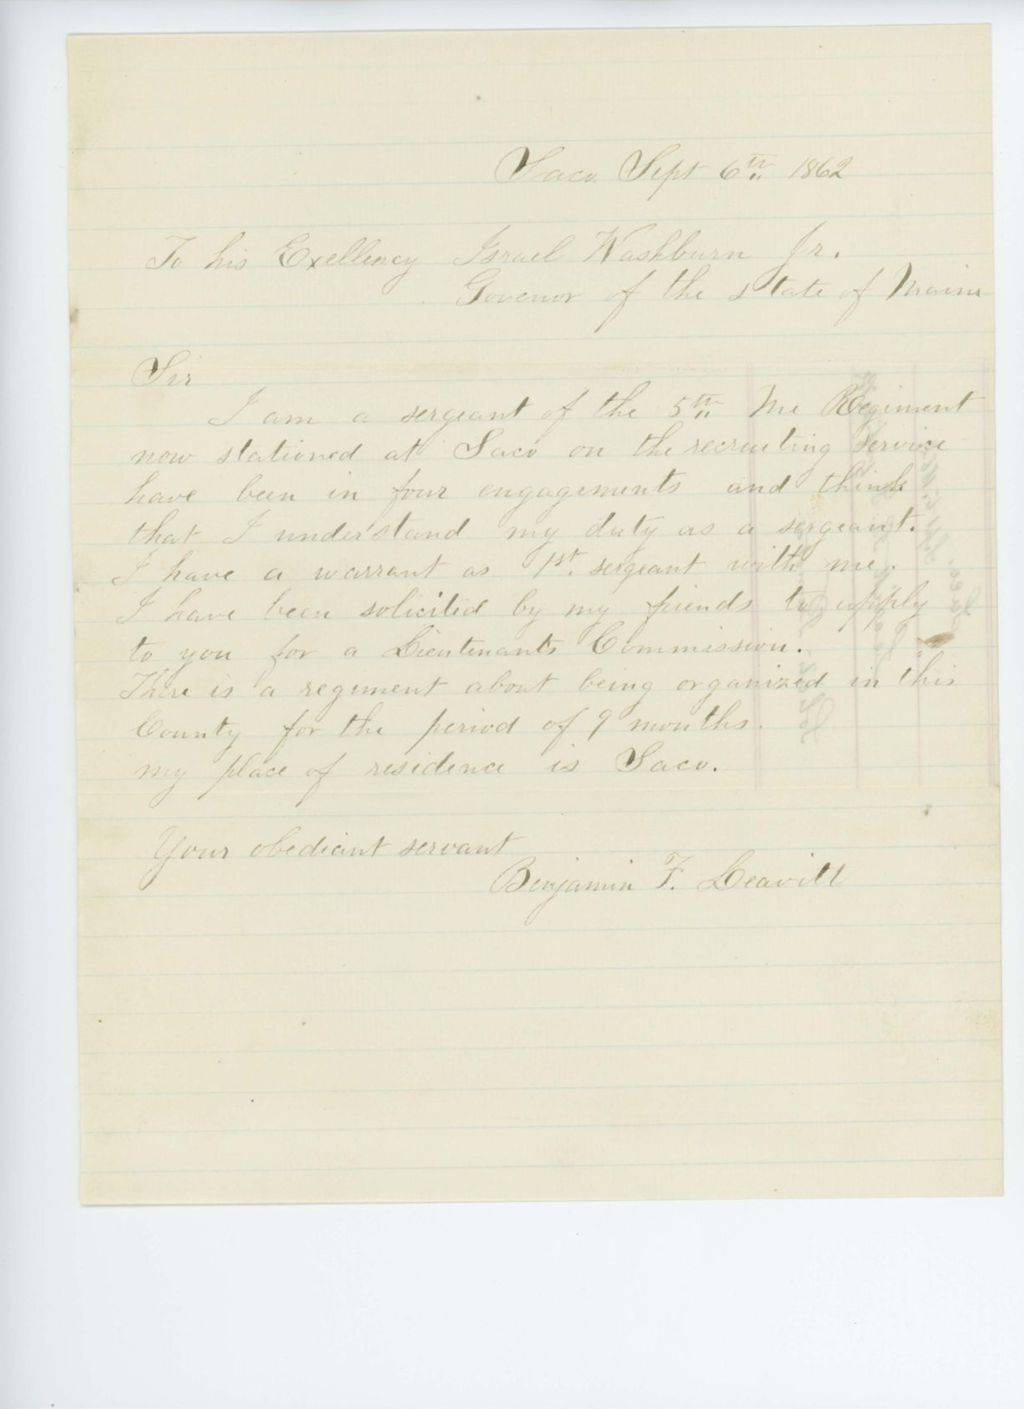 Saco Sept 6th 1862
To his Exellency Israel Washburn Jr.
Govenor of the state of Maine
Sir
I am a sergeant of the 5th Me Regiment
now stationed at Saco on the recruiting service
have been in four engagements and think
that I understand my duty as a sergeant.
I have a warrant as 1st. sergeant with me.
I have been solicited by my friends to apply
to you for a Lieutenants Commission.
There is a regiment about being organized in this
County for the period of 9 months.
my place of residence is Saco.
Your obediant servant
Benjamin F. Leavitt